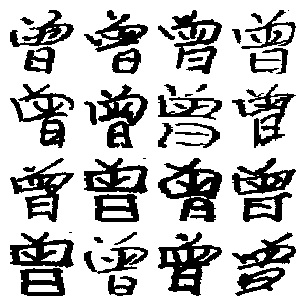 曾曾曾曾
曾曾曾曾
曾曾曾曾
曾曾曾曾